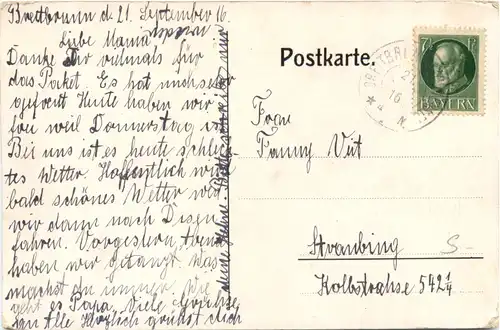 Breitbrunn d. 21. September 16.
Liebe Mama
Danke Dir vielmals für
das Paket. Es hat mich sehr
gefreut Heute haben wir
frei weil Donnerstag ist
Bei uns ist es heute schlech
tes Wetter. Hoffentlich wird
bald schönes Wetter weil
wir dann nach Dießen
fahren. Vorgestern Abend
haben wir getanzt. Was
machst du immer. Wie
geht es Papa. Viele Grüsse
an Alle Herzlich grüßt dich
deine Helene. Bitte schreibe mir
Postkarte.
BREITBRUNN
21
16
N.
7½
BAYERN
Frau
Fanny Veit
Straubing
Kolbstrahse 542¼
S